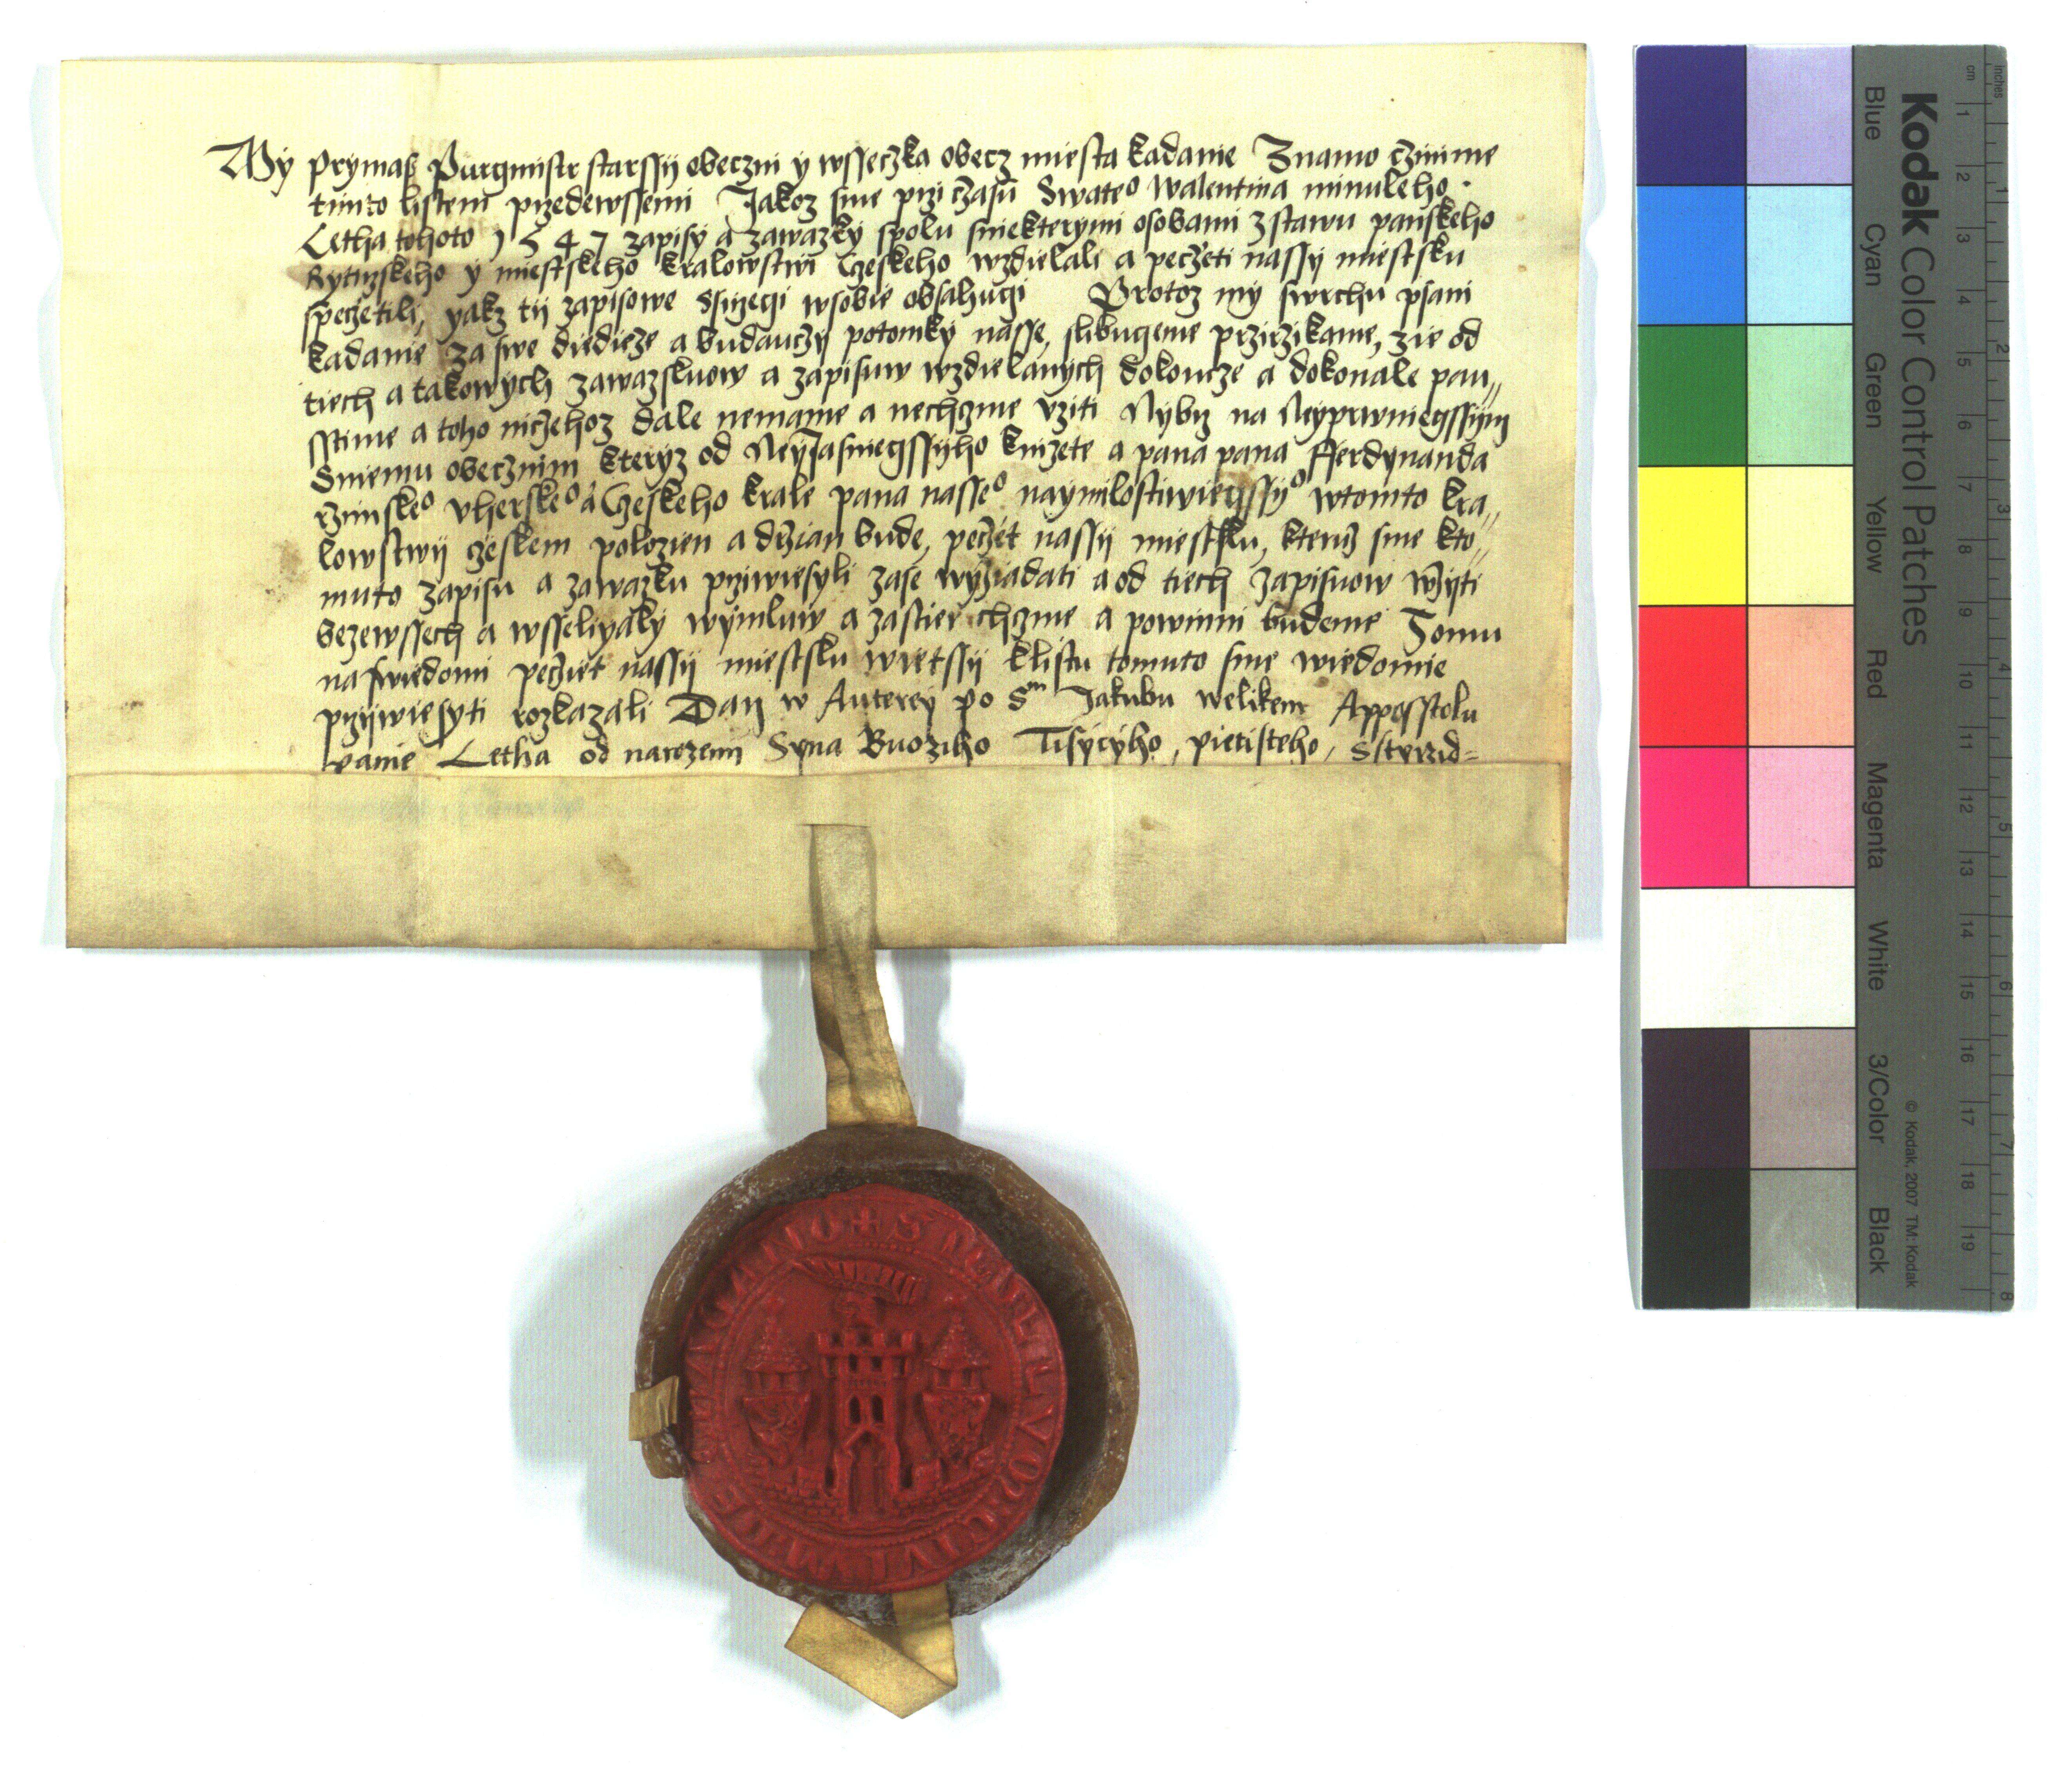 My prymas Purgmistr starssij obeczni y wsseczka obecz miesta Kadanie Znamo czinime
timto listem przedewssemi Jakoz sme przi czasu Swateo Walentina minuleho
Letha tohoto 1547 zapisy a zawazky spolu sniekterymi osobami zstawu panskeho
Rytirzskeho y miestskeho kralowstwi Czeskeho wzdielali a peczeti nassy miestsku
speczetili, yakz tij zapisowe Ssirzegi wsobie obsahugi Protoz my swrchu psani
Kadanie za swe diedicze a budauczy potomky nasse, slibugeme przirzikame, zie od
tiech a takowych zawazkuow a zapisuw wzdielanych dokoncze a dokonale pau„
sstime a toho niczehoz dale nemame a nechczme vziti Nybrz na Neyprwniegssym
Sniemu obecznim kteryz od Neyjasniegssyho knizete a pana pana Fferdynanda
rzimskeo vherskeo a Czeskeho krale pana nasseo naymilostiwiegssyo wtomto kra„
lowstwij czeskem polozien a drzian bude, peczet nassij miestsku, kteruz sme kto„
muto zapisu a zawazku przywiesyli zase wyziadati a od tiech zapisuow wzyti
bezewssech a wsseliyaky wymluw a zastier chczme a powinni budeme Tomu
na swiedomi peczet nassij miestsku wietssij klistu tomuto sme wiedomie
przijwiesyti rozkazali Dan w Auterey po Sm Jakubu welikem Appossstolu
Panie Letha od narozeni Syna Buoziho Tisyczyho, pietisteho, Sstyrzid=
Kodak Color Control Patches
Blue Cyan Green Yellow Red Magenta White 3/Color Black
© Kodak, 2007 TM: Kodak
cm 1 2 3 4 5 6 7 8 9 10 11 12 13 14 15 16 17 18 19
inches 1 2 3 4 5 6 7 8